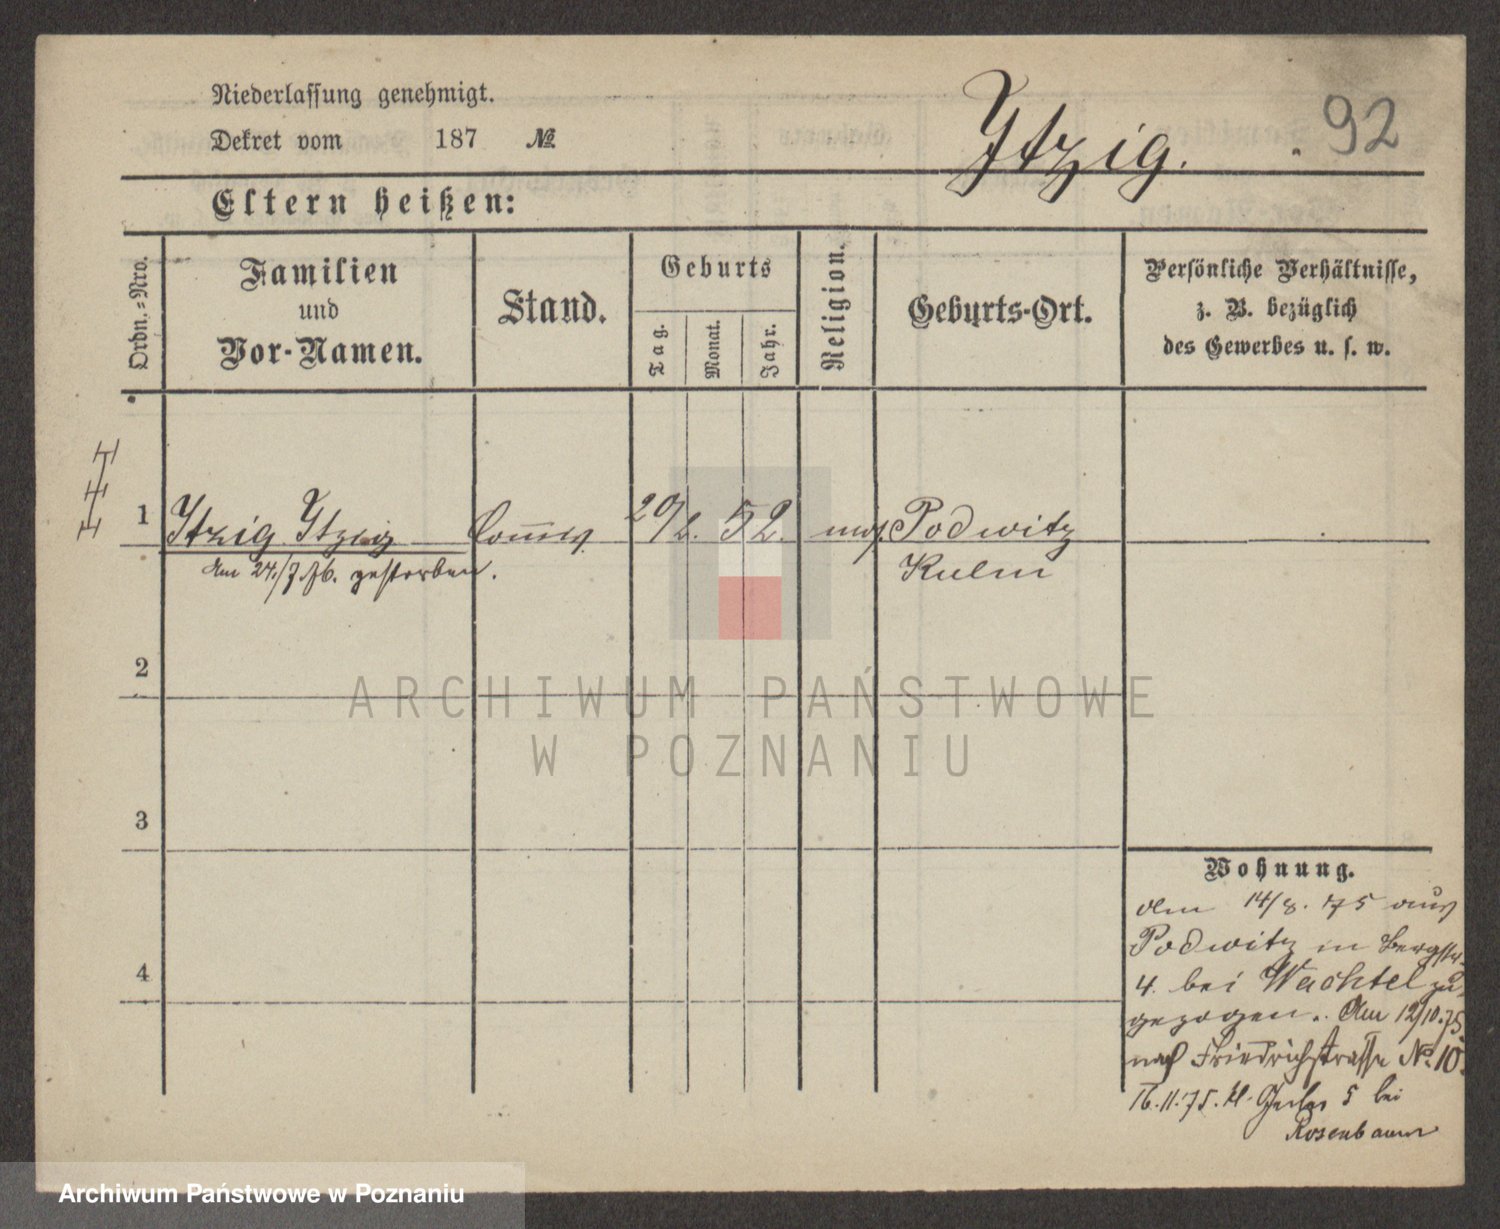 Niederlassung genehmigt.
Dekret vom 187 №
Itzig.
92
Eltern heißen:
Ordn.-Nro.
Familien
und
Vor-Namen.
Stand.
Geburts
Tag.
Monat.
Jahr.
Religion.
Geburts-Ort.
Persönliche Verhältnisse,
z. B. bezüglich
des Gewerbes u. s. w.
1 Itzig Itzig Comms. 20/2. 52. mos. Podwitz
am 24./7.76. gestorben.
Kulm
2
3
4
Wohnung.
Am 14/8. 75 aus
Podwitz in Bergstr.
4. bei Wachtel zu-
gezogen. Am 12/10.75.
nach Friedrichstrasse No. 10.
16.11.75. Kl. Gerber 5 bei
Rosenbaum
ARCHIWUM PAŃSTWOWE
W POZNANIU
Archiwum Państwowe w Poznaniu